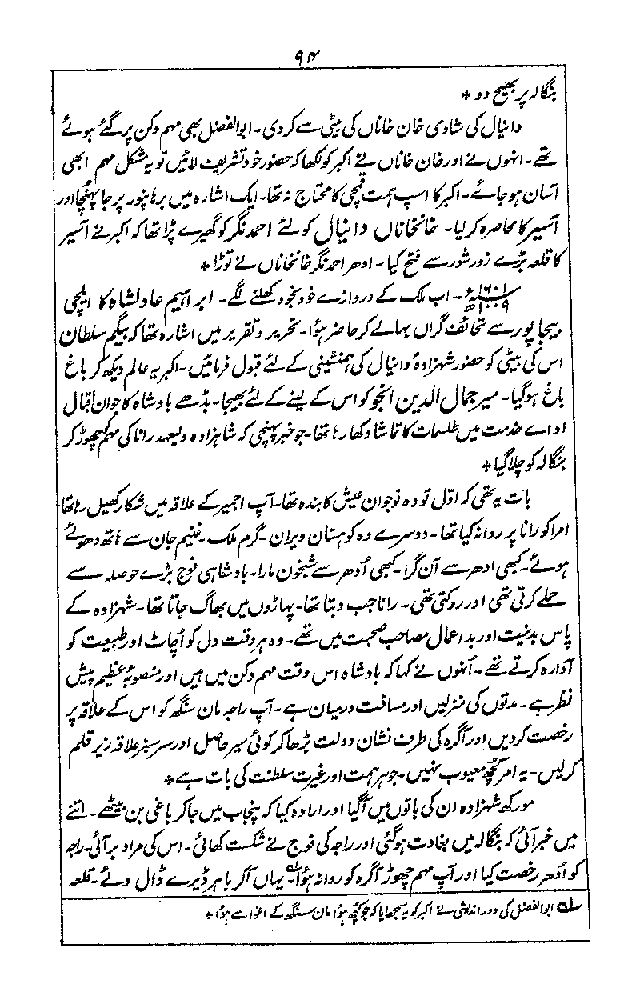 ۹۴
بنگالہ پر بھیج دو ٭
دانیال کی شادی خان خاناں کی بیٹی سے کردی۔ ابوالفضل بھی مہم دکن پر گئے ہوئے
تھے۔ انہوں نے اور خان خاناں نے اکبر کو لکھا کہ حضور خود تشریف لائیں تو یہ مشکل مہم ابھی
آسان ہو جائے۔ اکبر کا اسپ ہمت قمچی کا محتاج نہ تھا۔ ایک اشارہ میں برہانپور پر جا پہنچا اور
آسیر کا محاصرہ کرلیا۔ خانخاناں دانیال کو لئے احمد نگر کو گھیرے پڑا تھا کہ اکبر نے آسیر
کا قلعہ بڑے زور شور سے فتح کیا۔ ادھر احمد نگر خانخاناں نے توڑا ٭
۱۶۰۱ء ۱۰۰۹ھ۔ اب ملک کے دروازے خود بخود کھلنے لگے۔ ابراہیم عادلشاہ کا ایلچی
بیجاپور سے تحائف گراں بہا لے کر حاضر ہؤا۔ تحریر و تقریر میں اشارہ تھا کہ بیگم سلطان
اس کی بیٹی کو حضور شہزادہ دانیال کی ہمنشینی کے لئے قبول فرمائیں۔ اکبر یہ عالم دیکھ کر باغ
باغ ہوگیا۔ میر جمال الدین انجو کو اس کے لینے کے لئے بھیجا۔ بڈھے بادشاہ کا جوان اقبال
ادائے خدمت میں طلسمات کا تماشا دکھا رہا تھا۔ جو خبر پہنچی کہ شاہزادہ ولیعہد رانا کی مہم چھوڑ کر
بنگالہ کو چلا گیا ٭
بات یہ تھی کہ اوّل تو وہ نوجوان عیش کا بندہ تھا۔ آپ اجمیر کے علاقہ میں شکار کھیل رہا تھا
امرا کو رانا پر روانہ کیا تھا۔ دوسرے وہ کوہستان ویران۔ گرم ملک۔ غنیم جان سے ہاتھ دھوئے
ہوئے۔ کبھی ادھر سے آن گرا۔ کبھی اُدھر سے شبخون مارا۔ بادشاہی فوج بڑے حوصلہ سے
حملے کرتی تھی اور روکتی تھی۔ رانا جب دبتا تھا۔ پہاڑوں میں بھاگ جاتا تھا۔ شہزادہ کے
پاس بدنیت اور بداعمال مصاحب صحبت میں تھے۔ وہ ہر وقت دل کو اُچاٹ اور طبیعت کو
آوارہ کرتے تھے۔ اُنہوں نے کہا کہ بادشاہ اس وقت مہم دکن میں ہیں اور منصوبۂ عظیم پیش
نظر ہے۔ مدتوں کی منزلیں اور مسافت درمیان ہے۔ آپ راجہ مان سنگھ کو اس کے علاقہ پر
رخصت کردیں اور آگرہ کی طرف نشان دولت بڑھا کر کوئی سیر حاصل اور سرسبز علاقہ زیر قلم
کرلیں۔ یہ امر کچھ معیوب نہیں۔ جوہر ہمت اور غیرت سلطنت کی بات ہے ٭
مورکھ شہزادہ ان کی باتوں میں آگیا اور ارادہ کیا کہ پنجاب میں جاکر باغی بن بیٹھے۔ اتنے
میں خبر آئی کہ بنگالہ میں بغاوت ہوگئی اور راجہ کی فوج نے شکست کھائی۔ اس کی مراد بر آئی۔ راجہ
کو اُدھر رخصت کیا اور آپ مہم چھوڑ آگرہ کو روانہ ہؤا لہ یہاں آکر باہر ڈیرے ڈال دئے۔ قلعہ
لہ ابوالفضل کی دوراندیشی نے اکبر کو یہ سمجھایا کہ جو کچھ ہؤا مان سنگھ کے اغوا سے ہؤا ٭